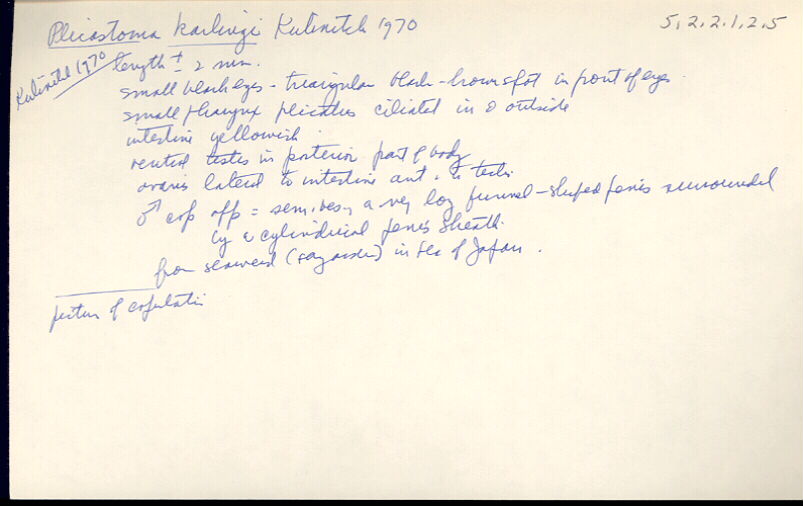 Plicastoma karlingi Kulinitch 1970 5,2.2.1,2.5
Kulinitch 1970
length ± 2 mm.
small black eyes - triangular black-brown spot in front of eyes
small pharynx plicatus ciliated in & outside
intestine yellowish
ventral testes in posterior part of body
ovaries lateral to intestine ant. to testis
♂ cop app = sem. ves, a very long funnel-shaped penis surrounded
by a cylindrical penis sheath
from seaweed in Sea of Japan.
picture of copulatis